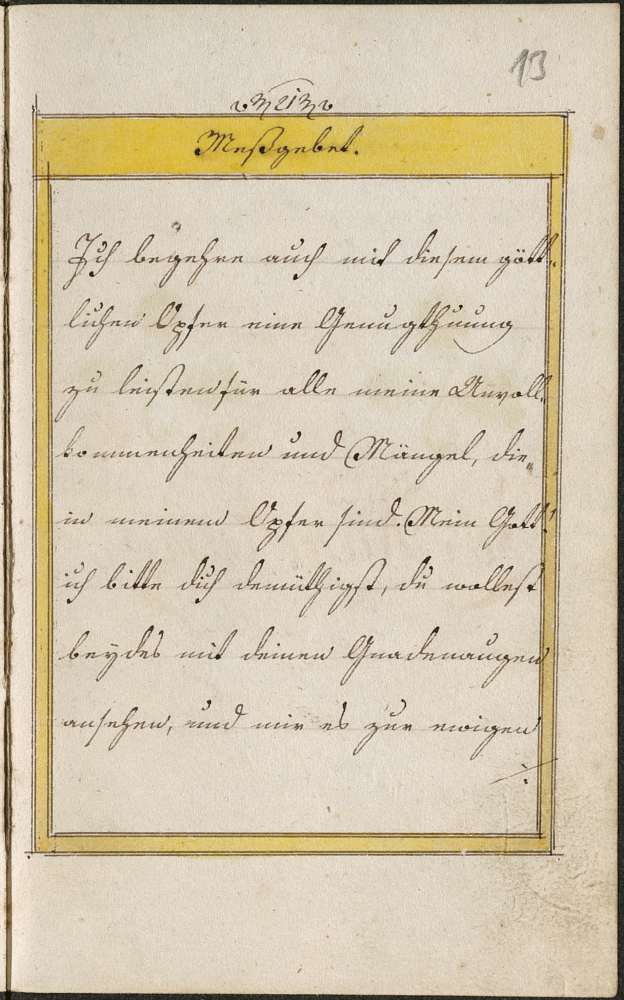 13
21
Meßgebet.
Ich begehre auch mit diesem gött-
lichen Opfer eine Genugthuung
zu leisten für alle meine Unvoll-
kommenheiten und Mängel, die
in meinem Opfer sind. Mein Gott!
ich bitte dich demüthigst, du wollest
beydes mit deinen Gnadenaugen
ansehen, und mir es zur ewigen